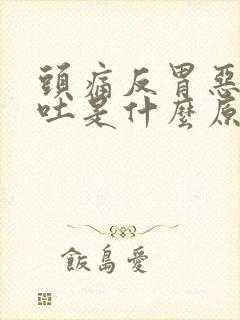 頭痛反胃惡
吐是什麼原
飯島愛